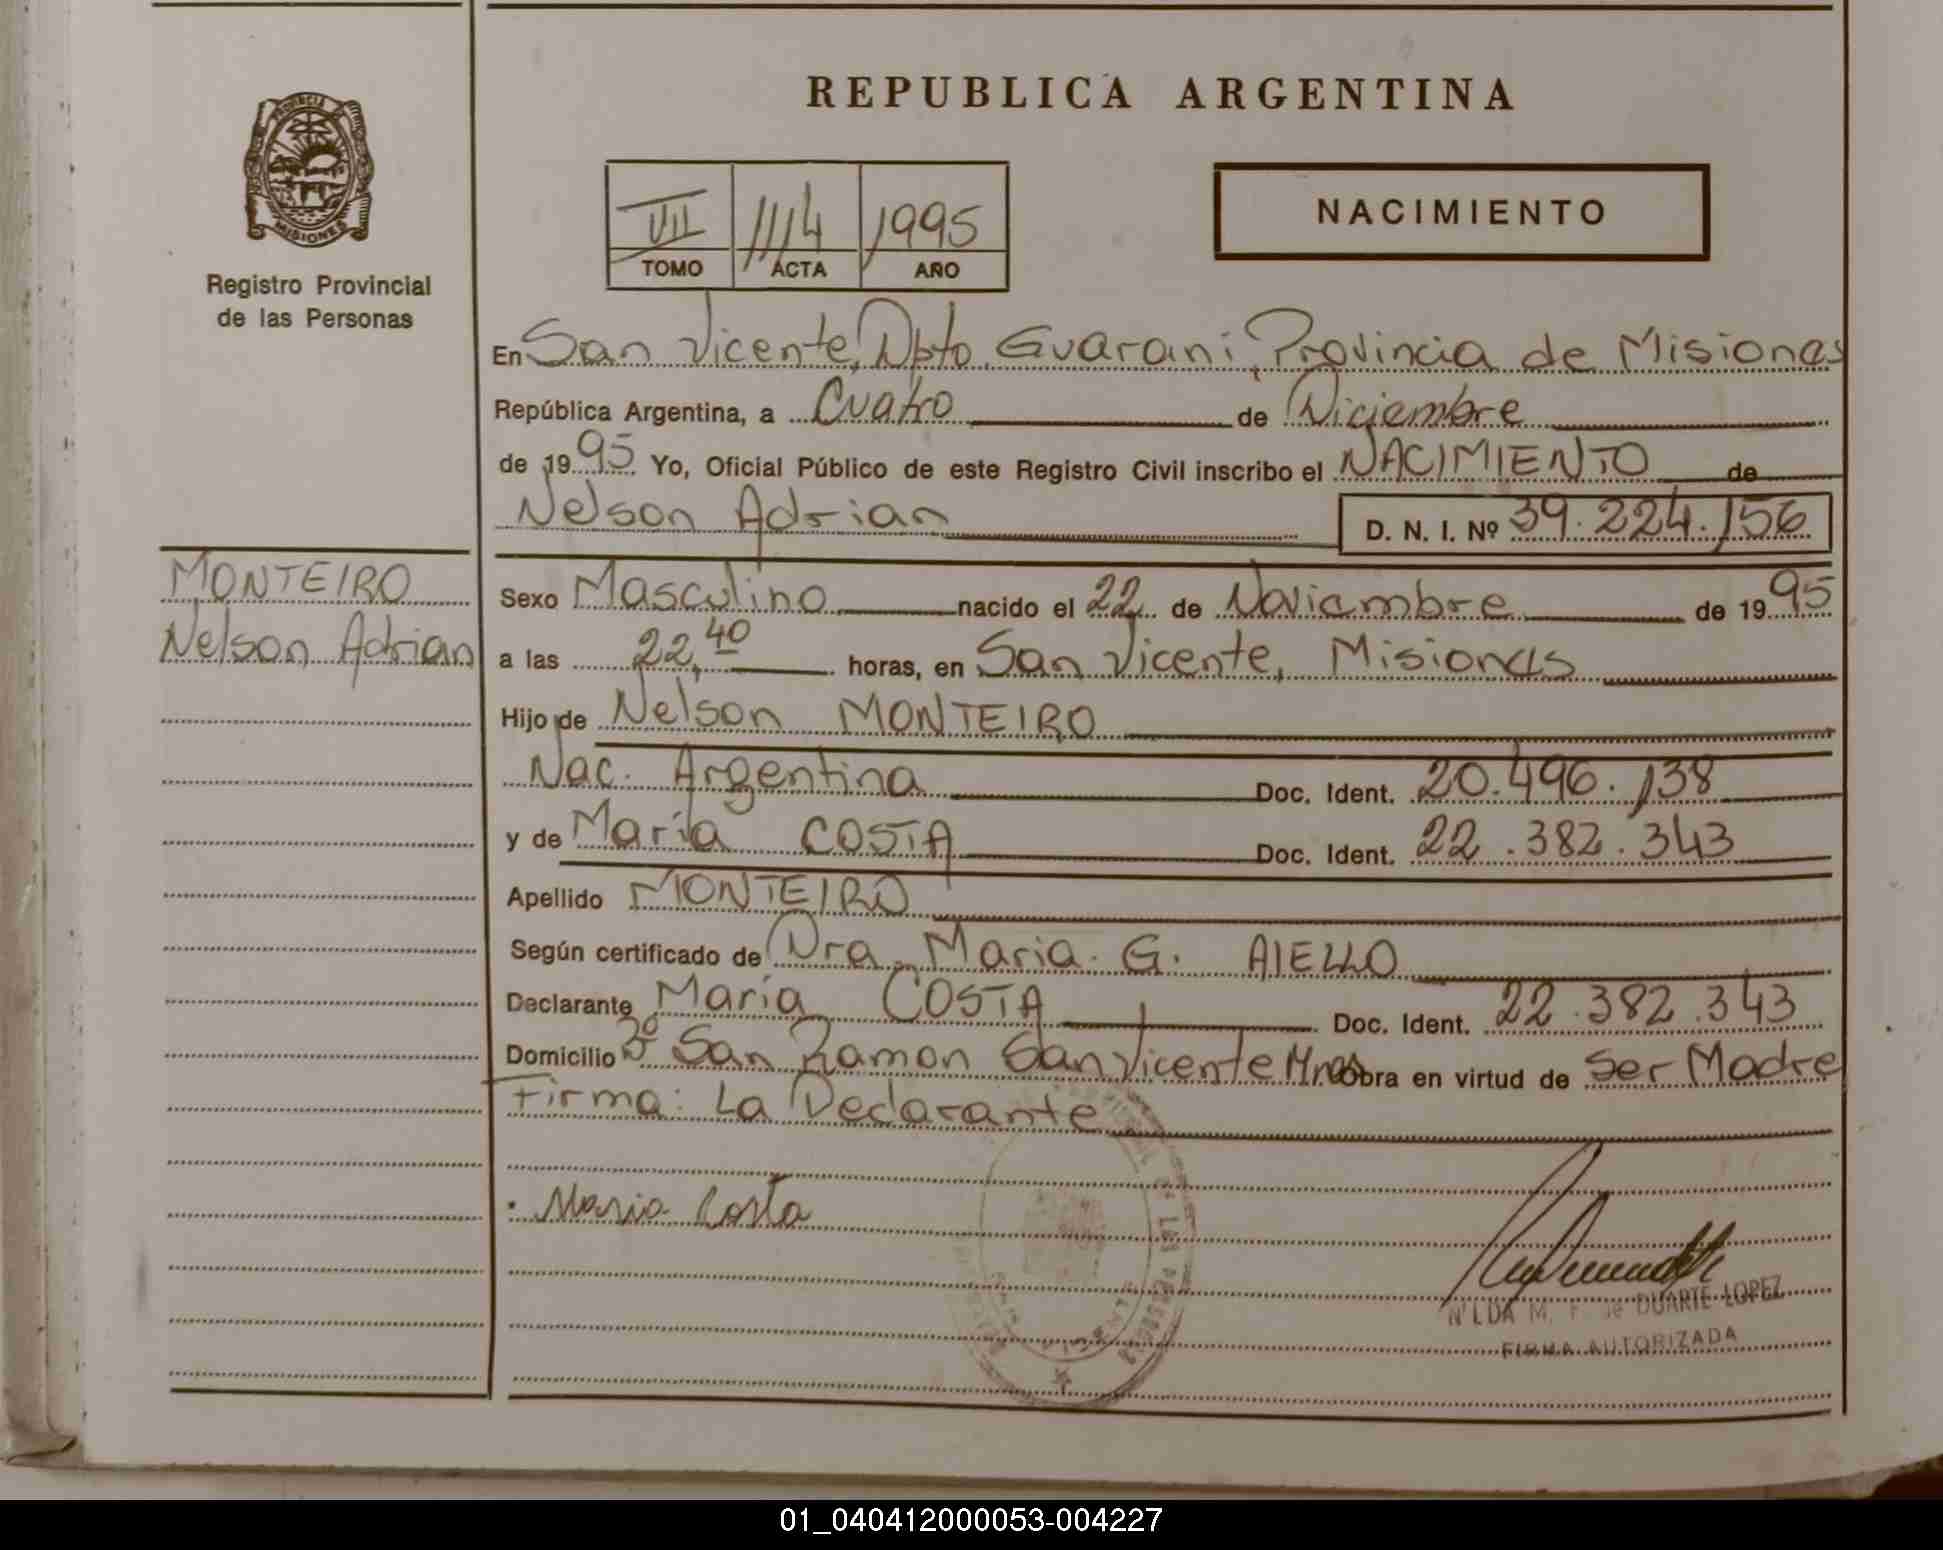 REPUBLICA ARGENTINA
PROVINCIA DE
MISIONES
Registro Provincial
de las Personas
VII 1114 1995
TOMO ACTA AÑO
NACIMIENTO
En San Vicente, Dpto. Guarani, Provincia de Misiones
República Argentina, a Cuatro de Diciembre
de 1995 Yo, Oficial Público de este Registro Civil inscribo el NACIMIENTO de
Nelson Adrian D. N. I. Nº 39.224.156
MONTEIRO
Nelson Adrian
Sexo Masculino nacido el 22 de Noviembre de 1995
a las 22,40 horas, en San Vicente, Misiones
Hijo de Nelson MONTEIRO
Nac. Argentina Doc. Ident. 20.496.138
y de María COSTA Doc. Ident. 22.382.343
Apellido MONTEIRO
Según certificado de Dra. Maria. G. AIELLO
Declarante María COSTA Doc. Ident. 22.382.343
Domicilio Bº San Ramon San Vicente Mnes Obra en virtud de Ser Madre
Firma: La Declarante
Maria Costa
DE LAS PERSONAS
NILDA M. F. de DUARTE LOPEZ
FIRMA AUTORIZADA
01_040412000053-004227